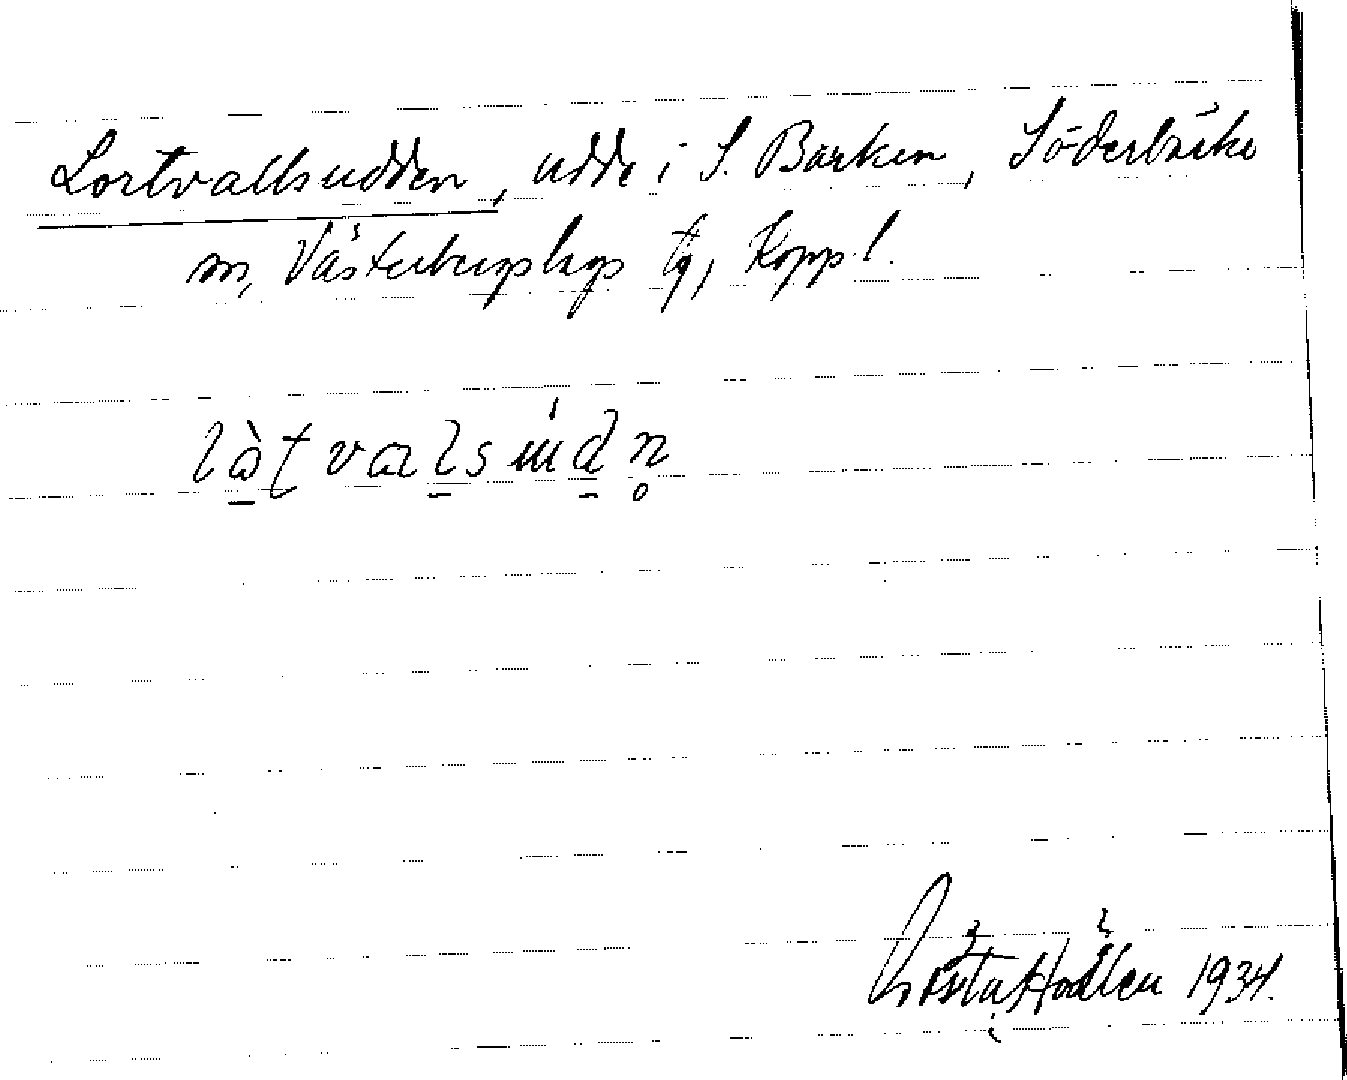 Lortvallsudden, udde i S. Barken, Söderbärke
sn, Västerbergslags tg, Kopp. l.
Gösta 1934.